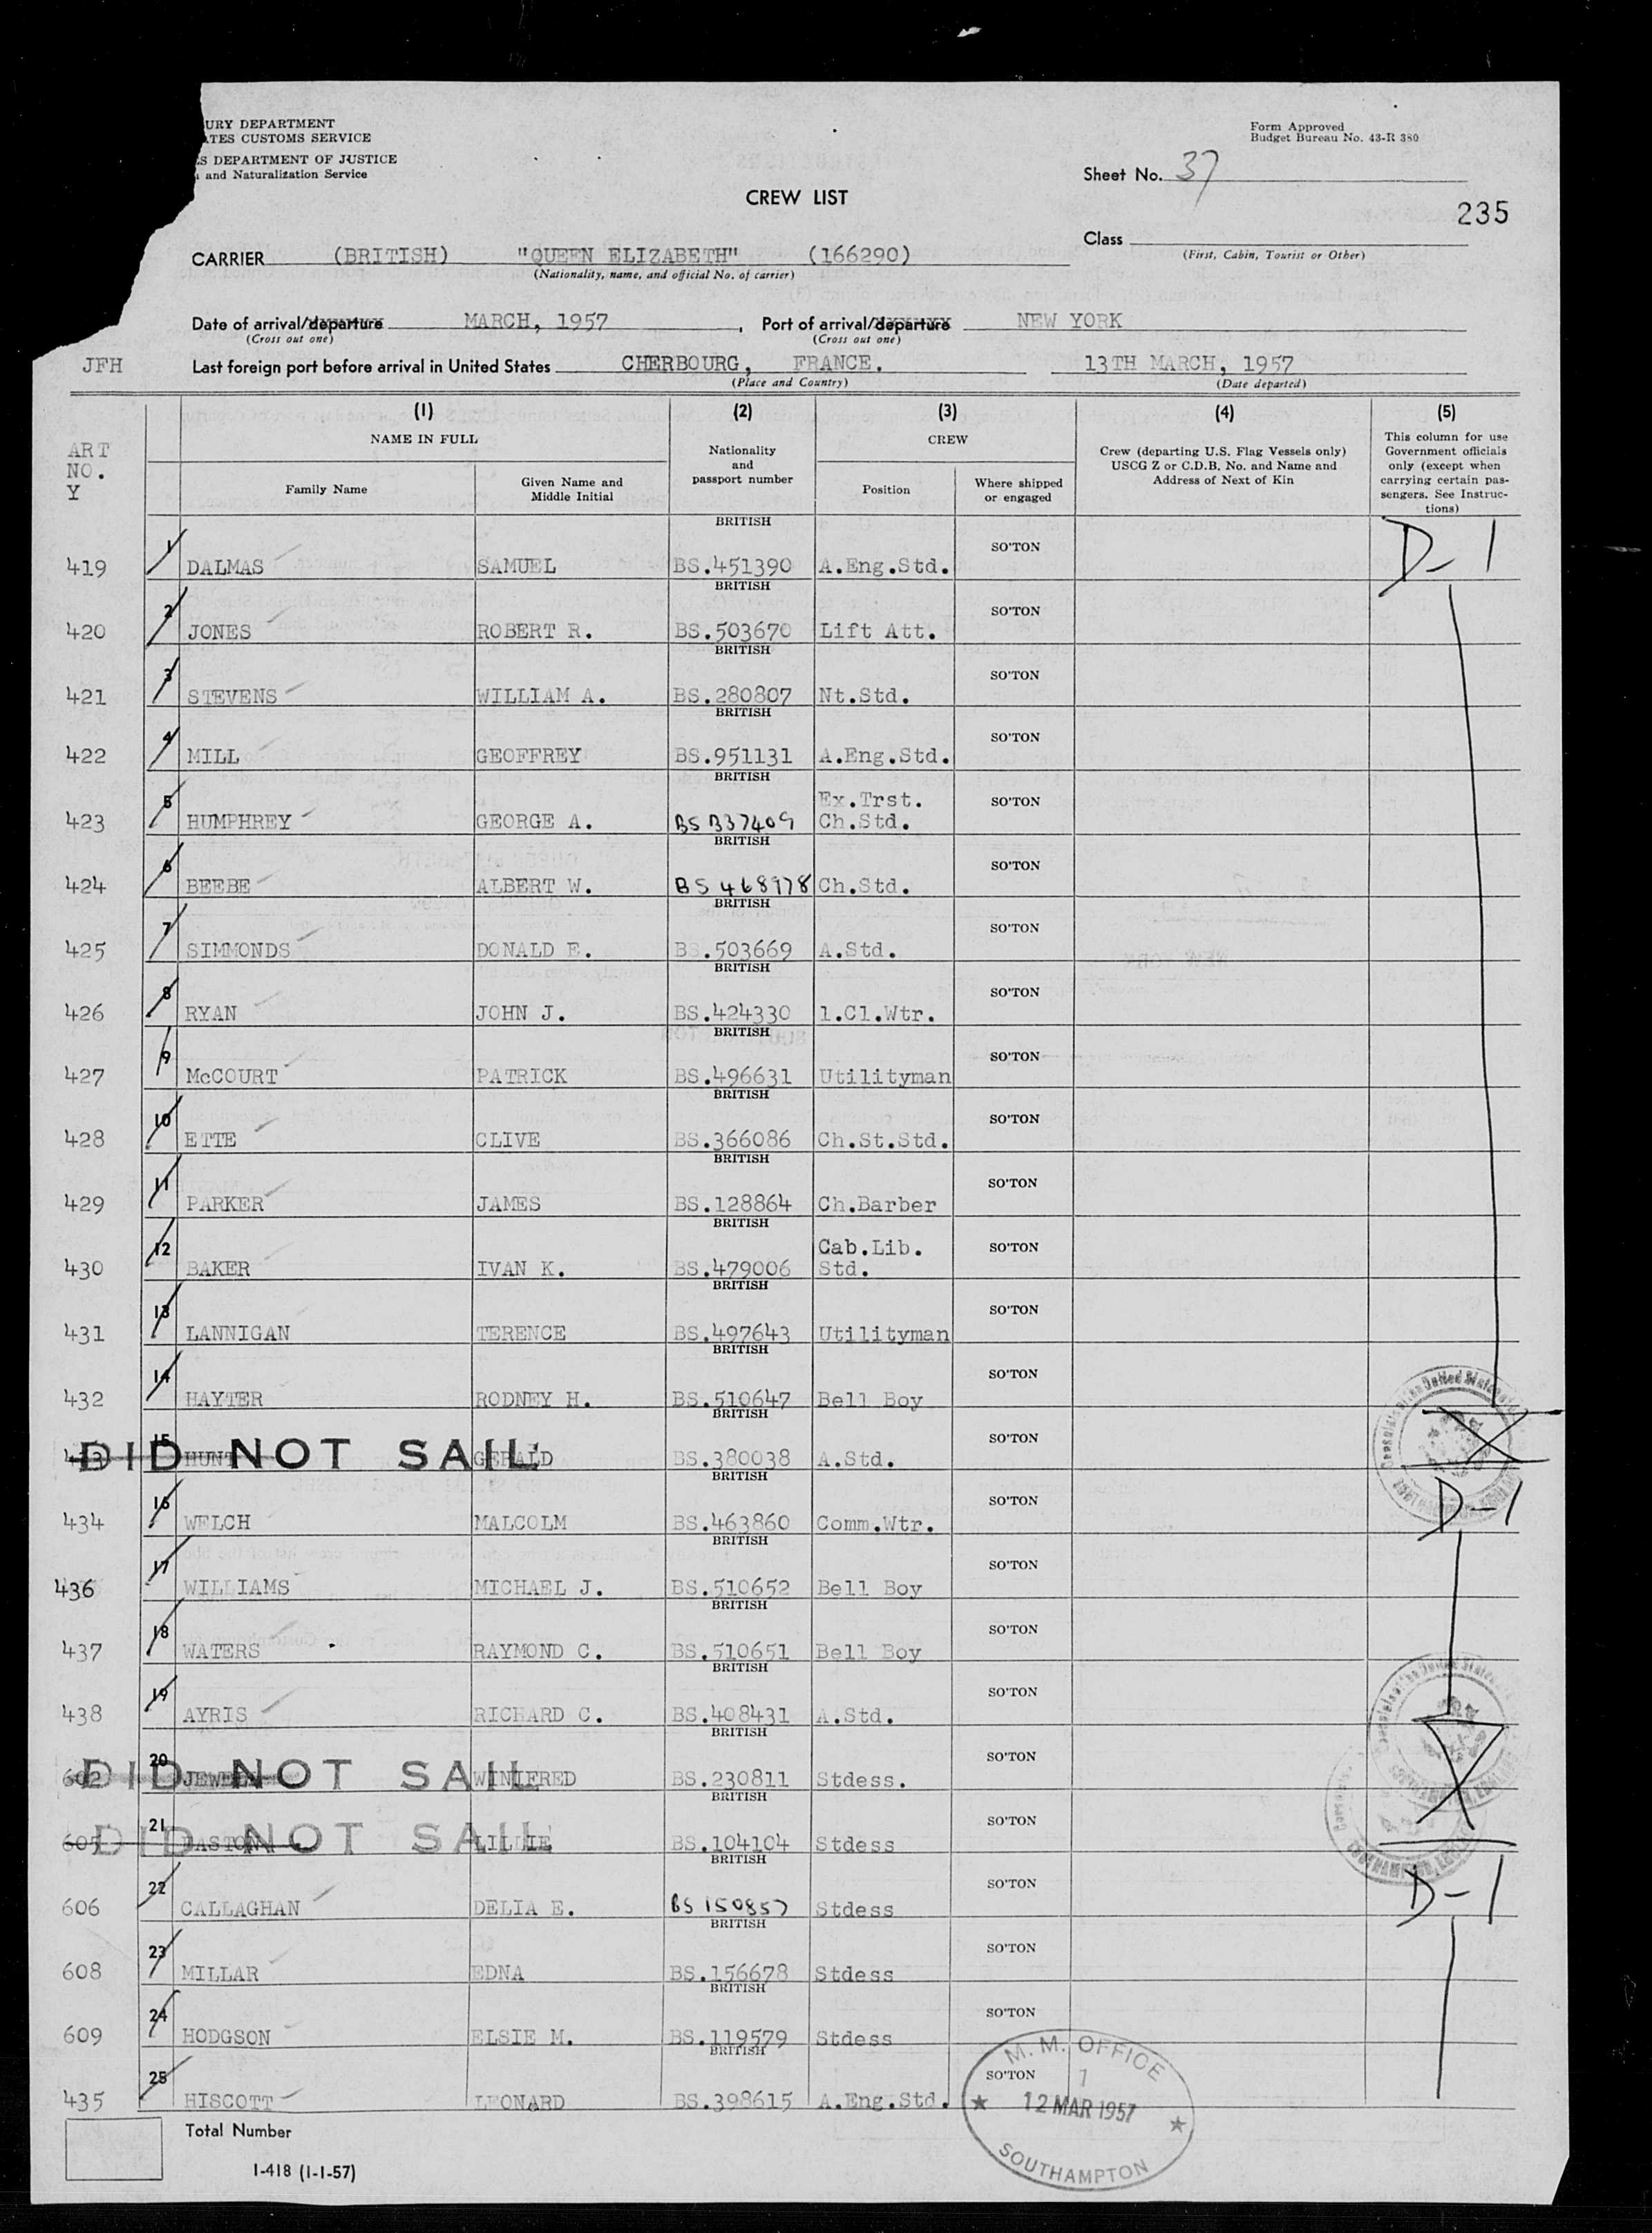 URY DEPARTMENT
TES CUSTOMS SERVICE
S DEPARTMENT OF JUSTICE
and Naturalization Service
Form Approved
Budget Bureau No. 43-R 380
Sheet No. 37
CREW LIST
235
Class
(First, Cabin, Tourist or Other)
CARRIER (BRITISH) "QUEEN ELIZABETH" (166290)
(Nationality, name, and official No. of carrier)
Date of arrival/departure MARCH, 1957, Port of arrival/departure NEW YORK
(Cross out one) (Cross out one)
JFH Last foreign port before arrival in United States CHERBOURG, FRANCE. 13TH MARCH, 1957
(Place and Country) (Date departed)
ART NO. Y
(1) NAME IN FULL
Family Name
Given Name and Middle Initial
(2) Nationality and passport number
(3) CREW
Position
Where shipped or engaged
(4) Crew (departing U.S. Flag Vessels only) USCG Z or C.D.B. No. and Name and Address of Next of Kin
(5) This column for use Government officials only (except when carrying certain passengers. See Instructions)
419 1 DALMAS SAMUEL BRITISH BS.451390 A.Eng.Std. SO'TON D-1
420 2 JONES ROBERT R. BRITISH BS.503670 Lift Att. SO'TON
421 3 STEVENS WILLIAM A. BRITISH BS.280807 Nt.Std. SO'TON
422 4 MILL GEOFFREY BRITISH BS.951131 A.Eng.Std. SO'TON
423 5 HUMPHREY GEORGE A. BRITISH BS B37409 Ex.Trst. Ch.Std. SO'TON
424 6 BEEBE ALBERT W. BRITISH BS 468978 Ch.Std. SO'TON
425 7 SIMMONDS DONALD E. BRITISH BS.503669 A.Std. SO'TON
426 8 RYAN JOHN J. BRITISH BS.424330 1.Cl.Wtr. SO'TON
427 9 McCOURT PATRICK BRITISH BS.496631 Utilityman SO'TON
428 10 ETTE CLIVE BRITISH BS.366086 Ch.St.Std. SO'TON
429 11 PARKER JAMES BRITISH BS.128864 Ch.Barber SO'TON
430 12 BAKER IVAN K. BRITISH BS.479006 Cab.Lib. Std. SO'TON
431 13 LANNIGAN TERENCE BRITISH BS.497643 Utilityman SO'TON
432 14 HAYTER RODNEY H. BRITISH BS.510647 Bell Boy SO'TON
15 HUNT GERALD BRITISH BS.380038 A.Std. SO'TON
DID NOT SAIL
434 16 WELCH MALCOLM BRITISH BS.463860 Comm.Wtr. SO'TON D-1
436 17 WILLIAMS MICHAEL J. BRITISH BS.510652 Bell Boy SO'TON
437 18 WATERS RAYMOND C. BRITISH BS.510651 Bell Boy SO'TON
438 19 AYRIS RICHARD C. BRITISH BS.408431 A.Std. SO'TON
602 20 WINIFRED BRITISH BS.230811 Stdess. SO'TON
DID NOT SAIL
605 21 LILLIE BRITISH BS.104104 Stdess SO'TON
DID NOT SAIL
606 22 CALLAGHAN DELIA E. BRITISH BS 150857 Stdess SO'TON D-1
608 23 MILLAR EDNA BRITISH BS.156678 Stdess SO'TON
609 24 HODGSON ELSIE M. BRITISH BS.119579 Stdess SO'TON
435 25 HISCOTT LEONARD BRITISH BS.398615 A.Eng.Std. SO'TON
M. M. OFFICE
1
12 MAR 1957
SOUTHAMPTON
Total Number
I-418 (1-1-57)